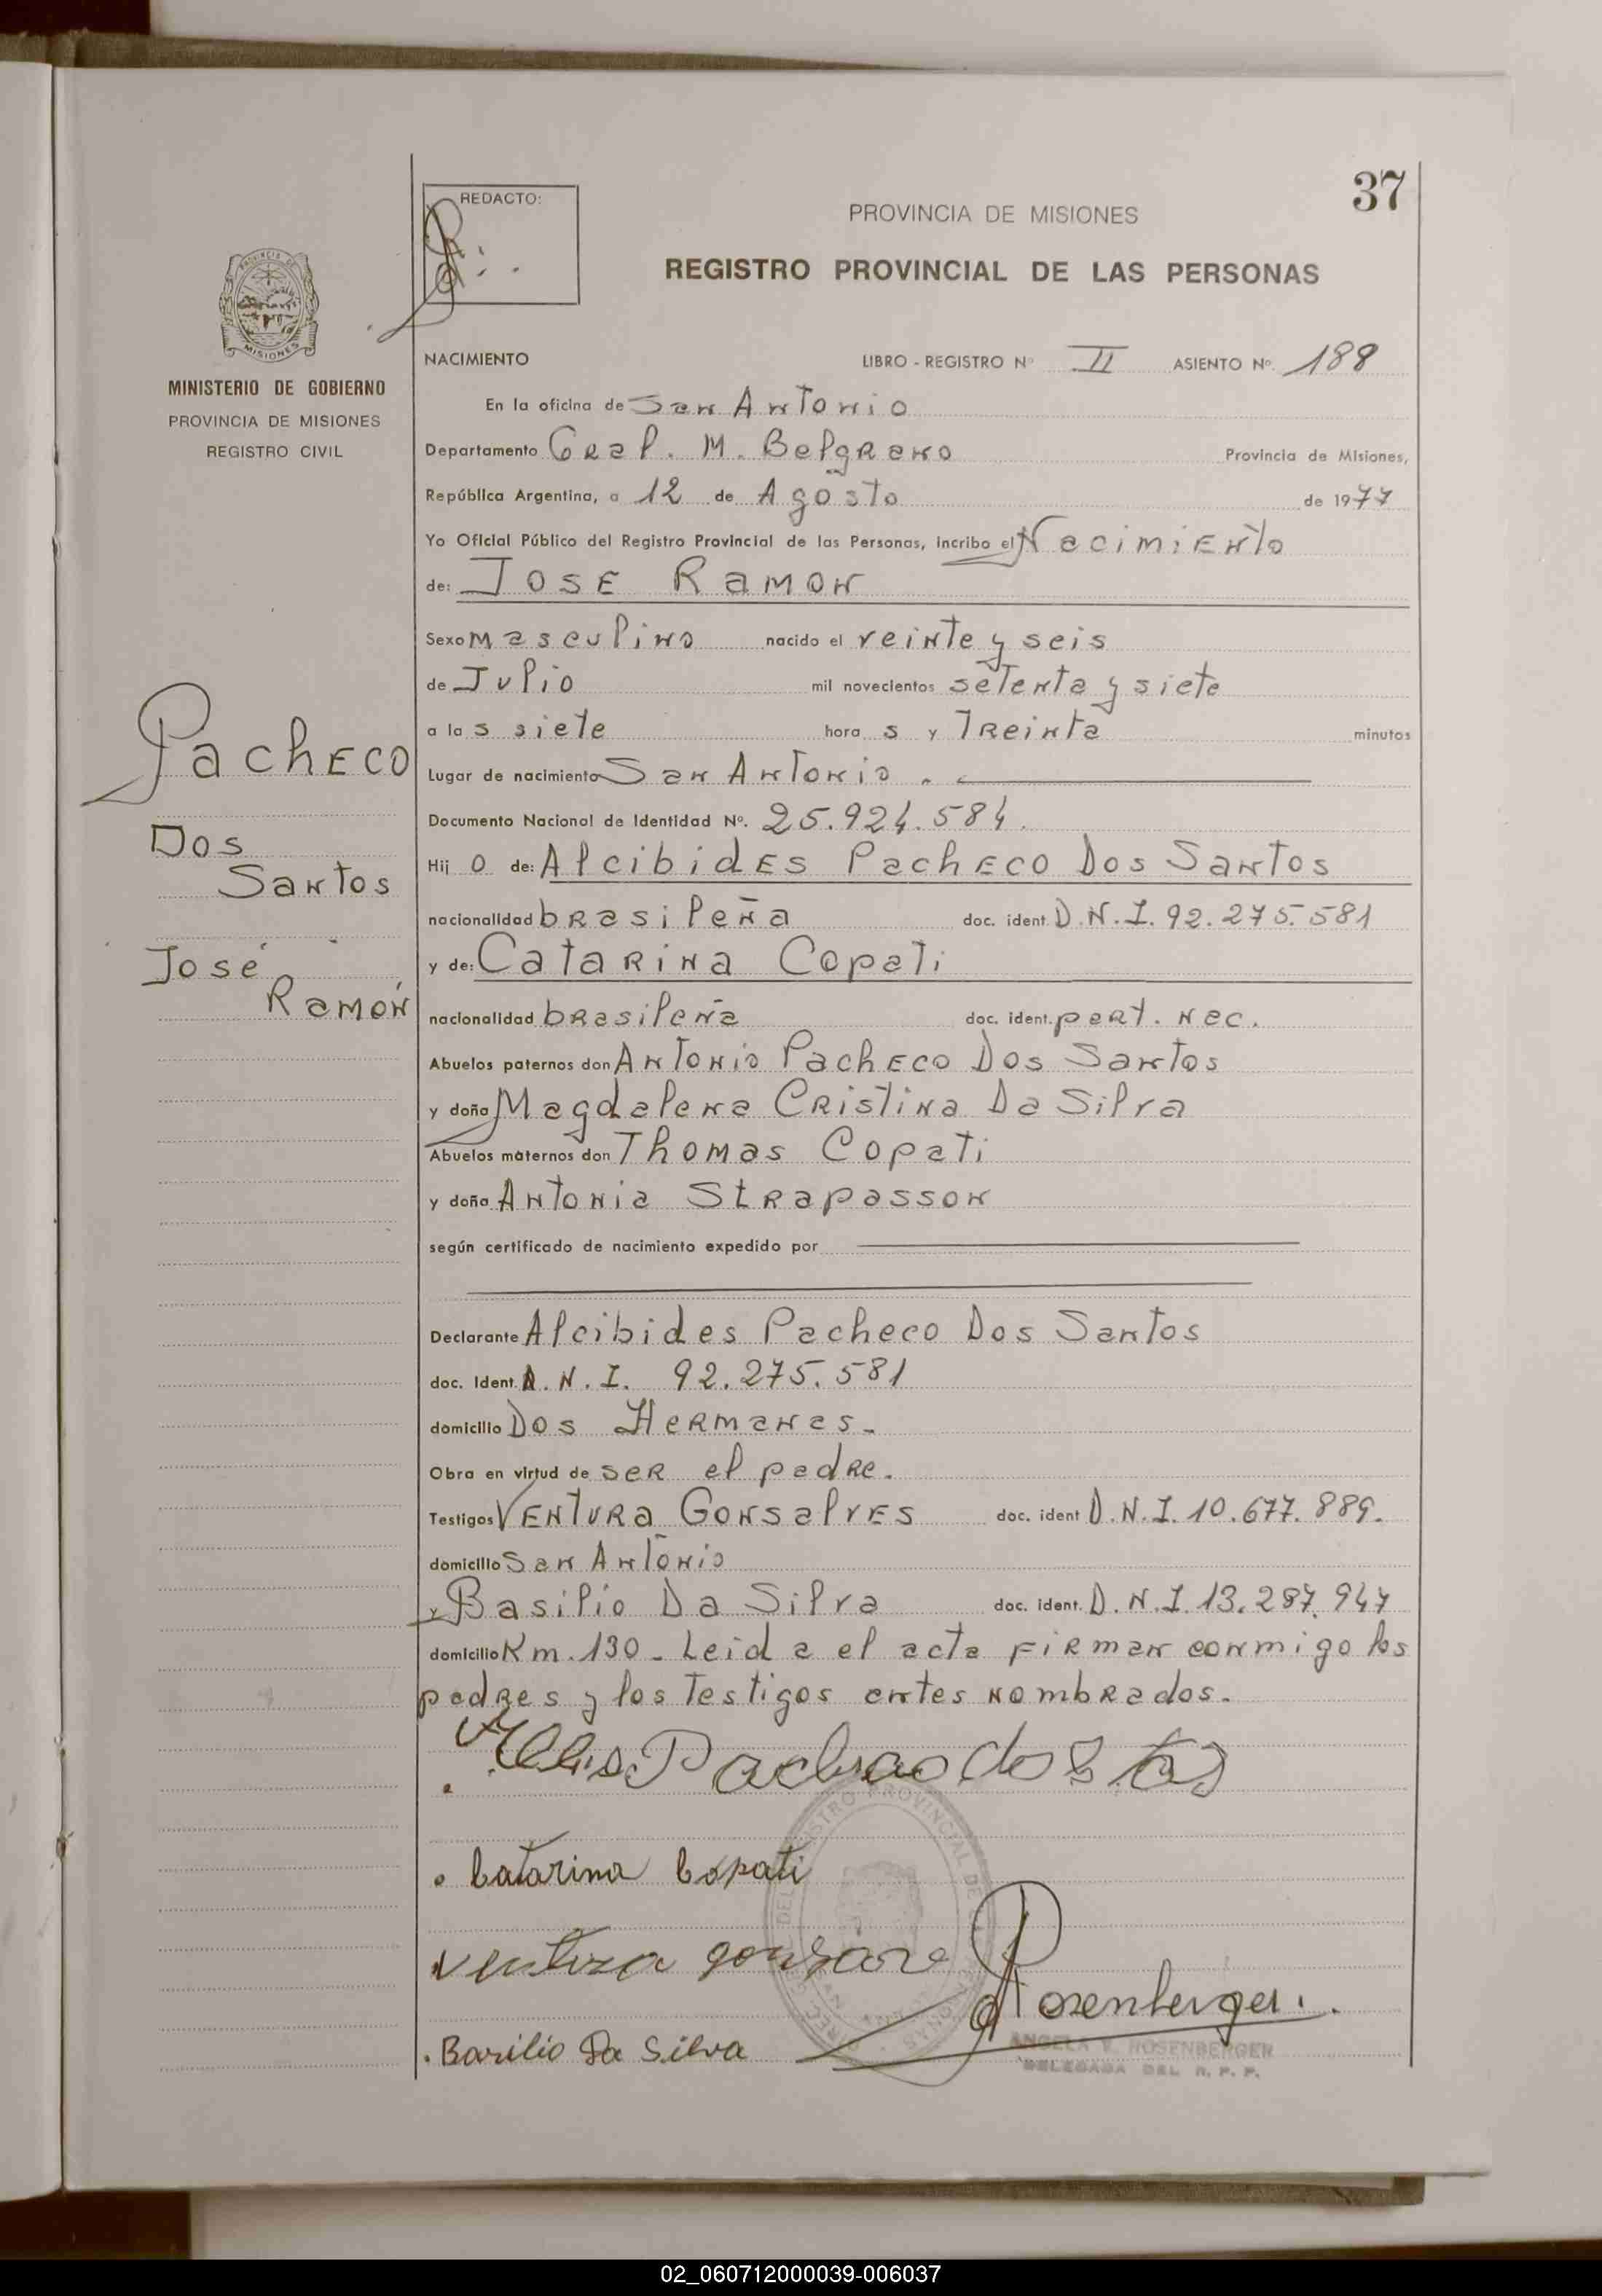 37
REDACTO:
PROVINCIA DE MISIONES
REGISTRO PROVINCIAL DE LAS PERSONAS
PROVINCIA DE
MISIONES
MINISTERIO DE GOBIERNO
PROVINCIA DE MISIONES
REGISTRO CIVIL
NACIMIENTO LIBRO - REGISTRO Nº II ASIENTO Nº. 188
En la oficina de San Antonio
Departamento Gral. M. Belgrano Provincia de Misiones,
República Argentina, a 12 de Agosto de 1977
Yo Oficial Público del Registro Provincial de las Personas, incribo el Nacimiento
de: Jose Ramon
Sexo masculino nacido el veinte y seis
de Julio mil novecientos setenta y siete
a las siete horas y Treinta minutos
Lugar de nacimiento San Antonio.
Documento Nacional de Identidad Nº. 25.924.584.
Hijo de: Alcibides Pacheco Dos Santos
nacionalidad brasileña doc. ident. D.N.I. 92.275.581
y de: Catarina Copati
nacionalidad brasileña doc. ident. part. nac.
Abuelos paternos don Antonio Pacheco Dos Santos
y doña Magdalena Cristina Da Silva
Abuelos maternos don Thomas Copati
y doña Antonia Strapasson
según certificado de nacimiento expedido por
Declarante Alcibides Pacheco Dos Santos
doc. Ident. D.N.I. 92.275.581
domicilio Dos Hermanas.
Obra en virtud de ser el padre.
Testigos Ventura Gonsalves doc. ident D.N.I. 10.677.889.
domicilio San Antonio
y Basilio Da Silva doc. ident. D.N.I. 13.287.947
domicilio Km. 130 - Leida el acta firman conmigo los
padres y los Testigos antes nombrados.
Pacheco
Dos
Santos
José
Ramón
Pacheco dos
Catarina Copati
Ventura
Rosenberger.
Basilio Da Silva
ANGELA V. ROSENBERGER
DELEGADA DEL R. P. P.
02_060712000039-006037